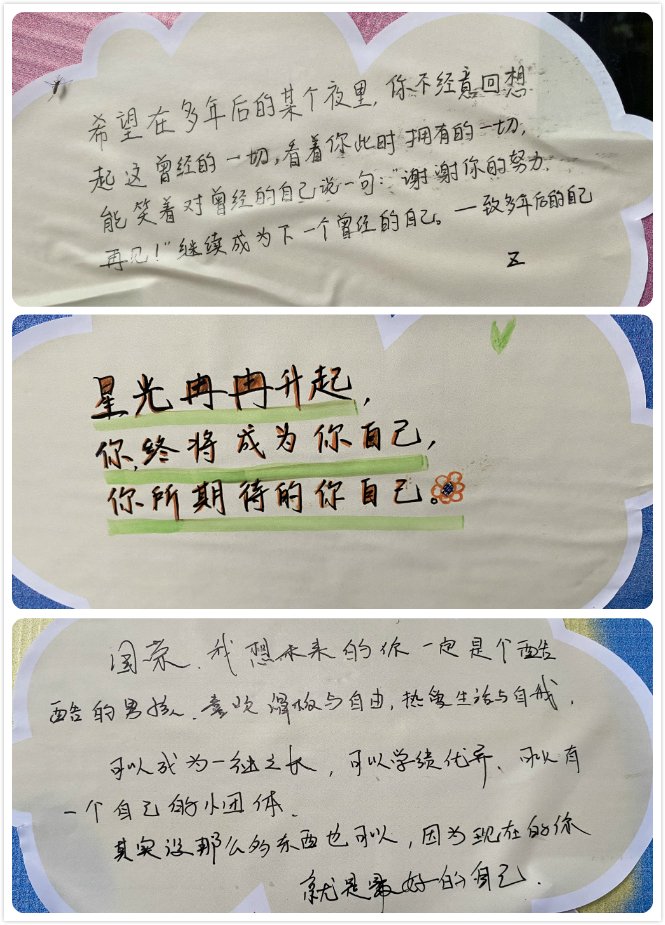 希望在多年后的某个夜里，你不经意回想
起这曾经的一切，看着你此时拥有的一切，
能笑着对曾经的自己说一句："谢谢你的努力，
再见！"继续成为下一个曾经的自己。—致多年后的自己
星光冉冉升起，
你，终将成为你自己，
你所期待的你自己。
国荣、我想未来的你一定是个酷
酷的男孩、喜欢滑板与自由，热爱生活与自我，
可以成为一组之长，可以学绩优异、可以有
一个自己的小团体、
其实没那么多东西也可以，因为现在的你
就是最好的自己.